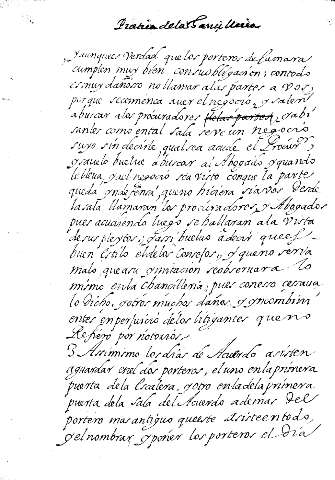 Pratica de la Chanzilleria
y aunque es Verdad que los porteros de Camara
cumplen muy bien con su obligacion; con todo
es muy dañoso no llamar a las partes a Vos,
porque se comiença a ver el negocio, y salen
a buscar a los procuradores y abi
santes como en tal sala se ve un negocio
suyo sin decirle qual sea acude el Procurr
y quando buelue a buscar al Abogado y quando
le lleva, ya el negocio sea visto con que la parte
queda yndefensa, que no hiciera si a Vos desde
la sala llamaran los procuradores, y Abogados
pues acudiendo luego se hallaran a la Vista
de sus pleytos, y assi buelvo a decir que es
buen estilo el de los Consejos, y que no seria
malo que a su ymitacion se observara lo
mismo en la Chancilleria; pues con esto cesaua
lo dicho, y otros muchos daños, y ynconbini
entes en perjuicio de los litigantes que no
Refiero por notorios.
3 Assimismo los dias de Acuerdo asisten
a guardar el dos porteros, el uno en la primera
puerta de la Escalera, y otro en la de la primera
puerta de la Sala del Acuerdo ademas del
portero mas antiguo que este asiste en todo,
y el nombrar y poner los porteros el dia